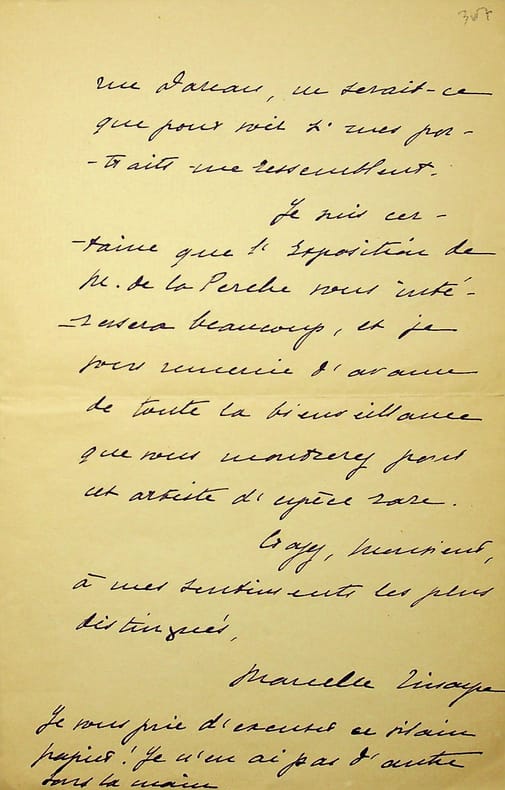 rue Dareau, ne serait-ce
que pour voir si mes por-
-traits me ressemblent.
Je suis cer-
-taine que l'Exposition de
M. de la Perche vous inté-
-ressera beaucoup, et je
vous remercie d'avance
de toute la bienveillance
que vous montrerez pour
cet artiste d'espèce rare.
Croyez, Monsieur,
à mes sentiments les plus
distingués,
Marcelle Tinayre
Je vous prie d'excuser ce vilain
papier! Je n'en ai pas d'autre
sous la main